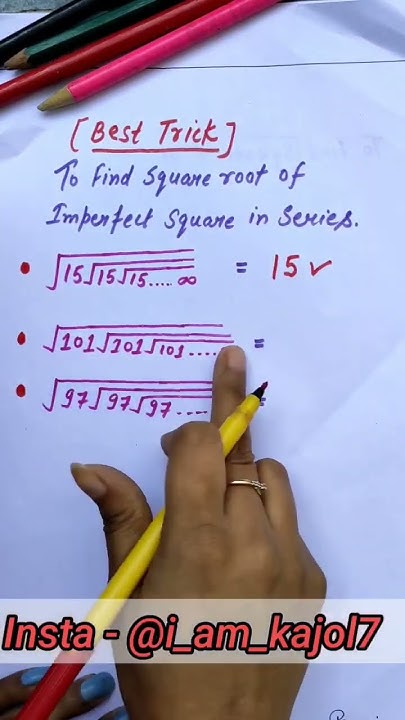 [Best Trick]
To find square root of
Imperfect Square in Series.
√15√15√15.....∞ = 15 ✓
√101√101√101.... =
√97√97√97.... =
Insta - @i_am_kajol7